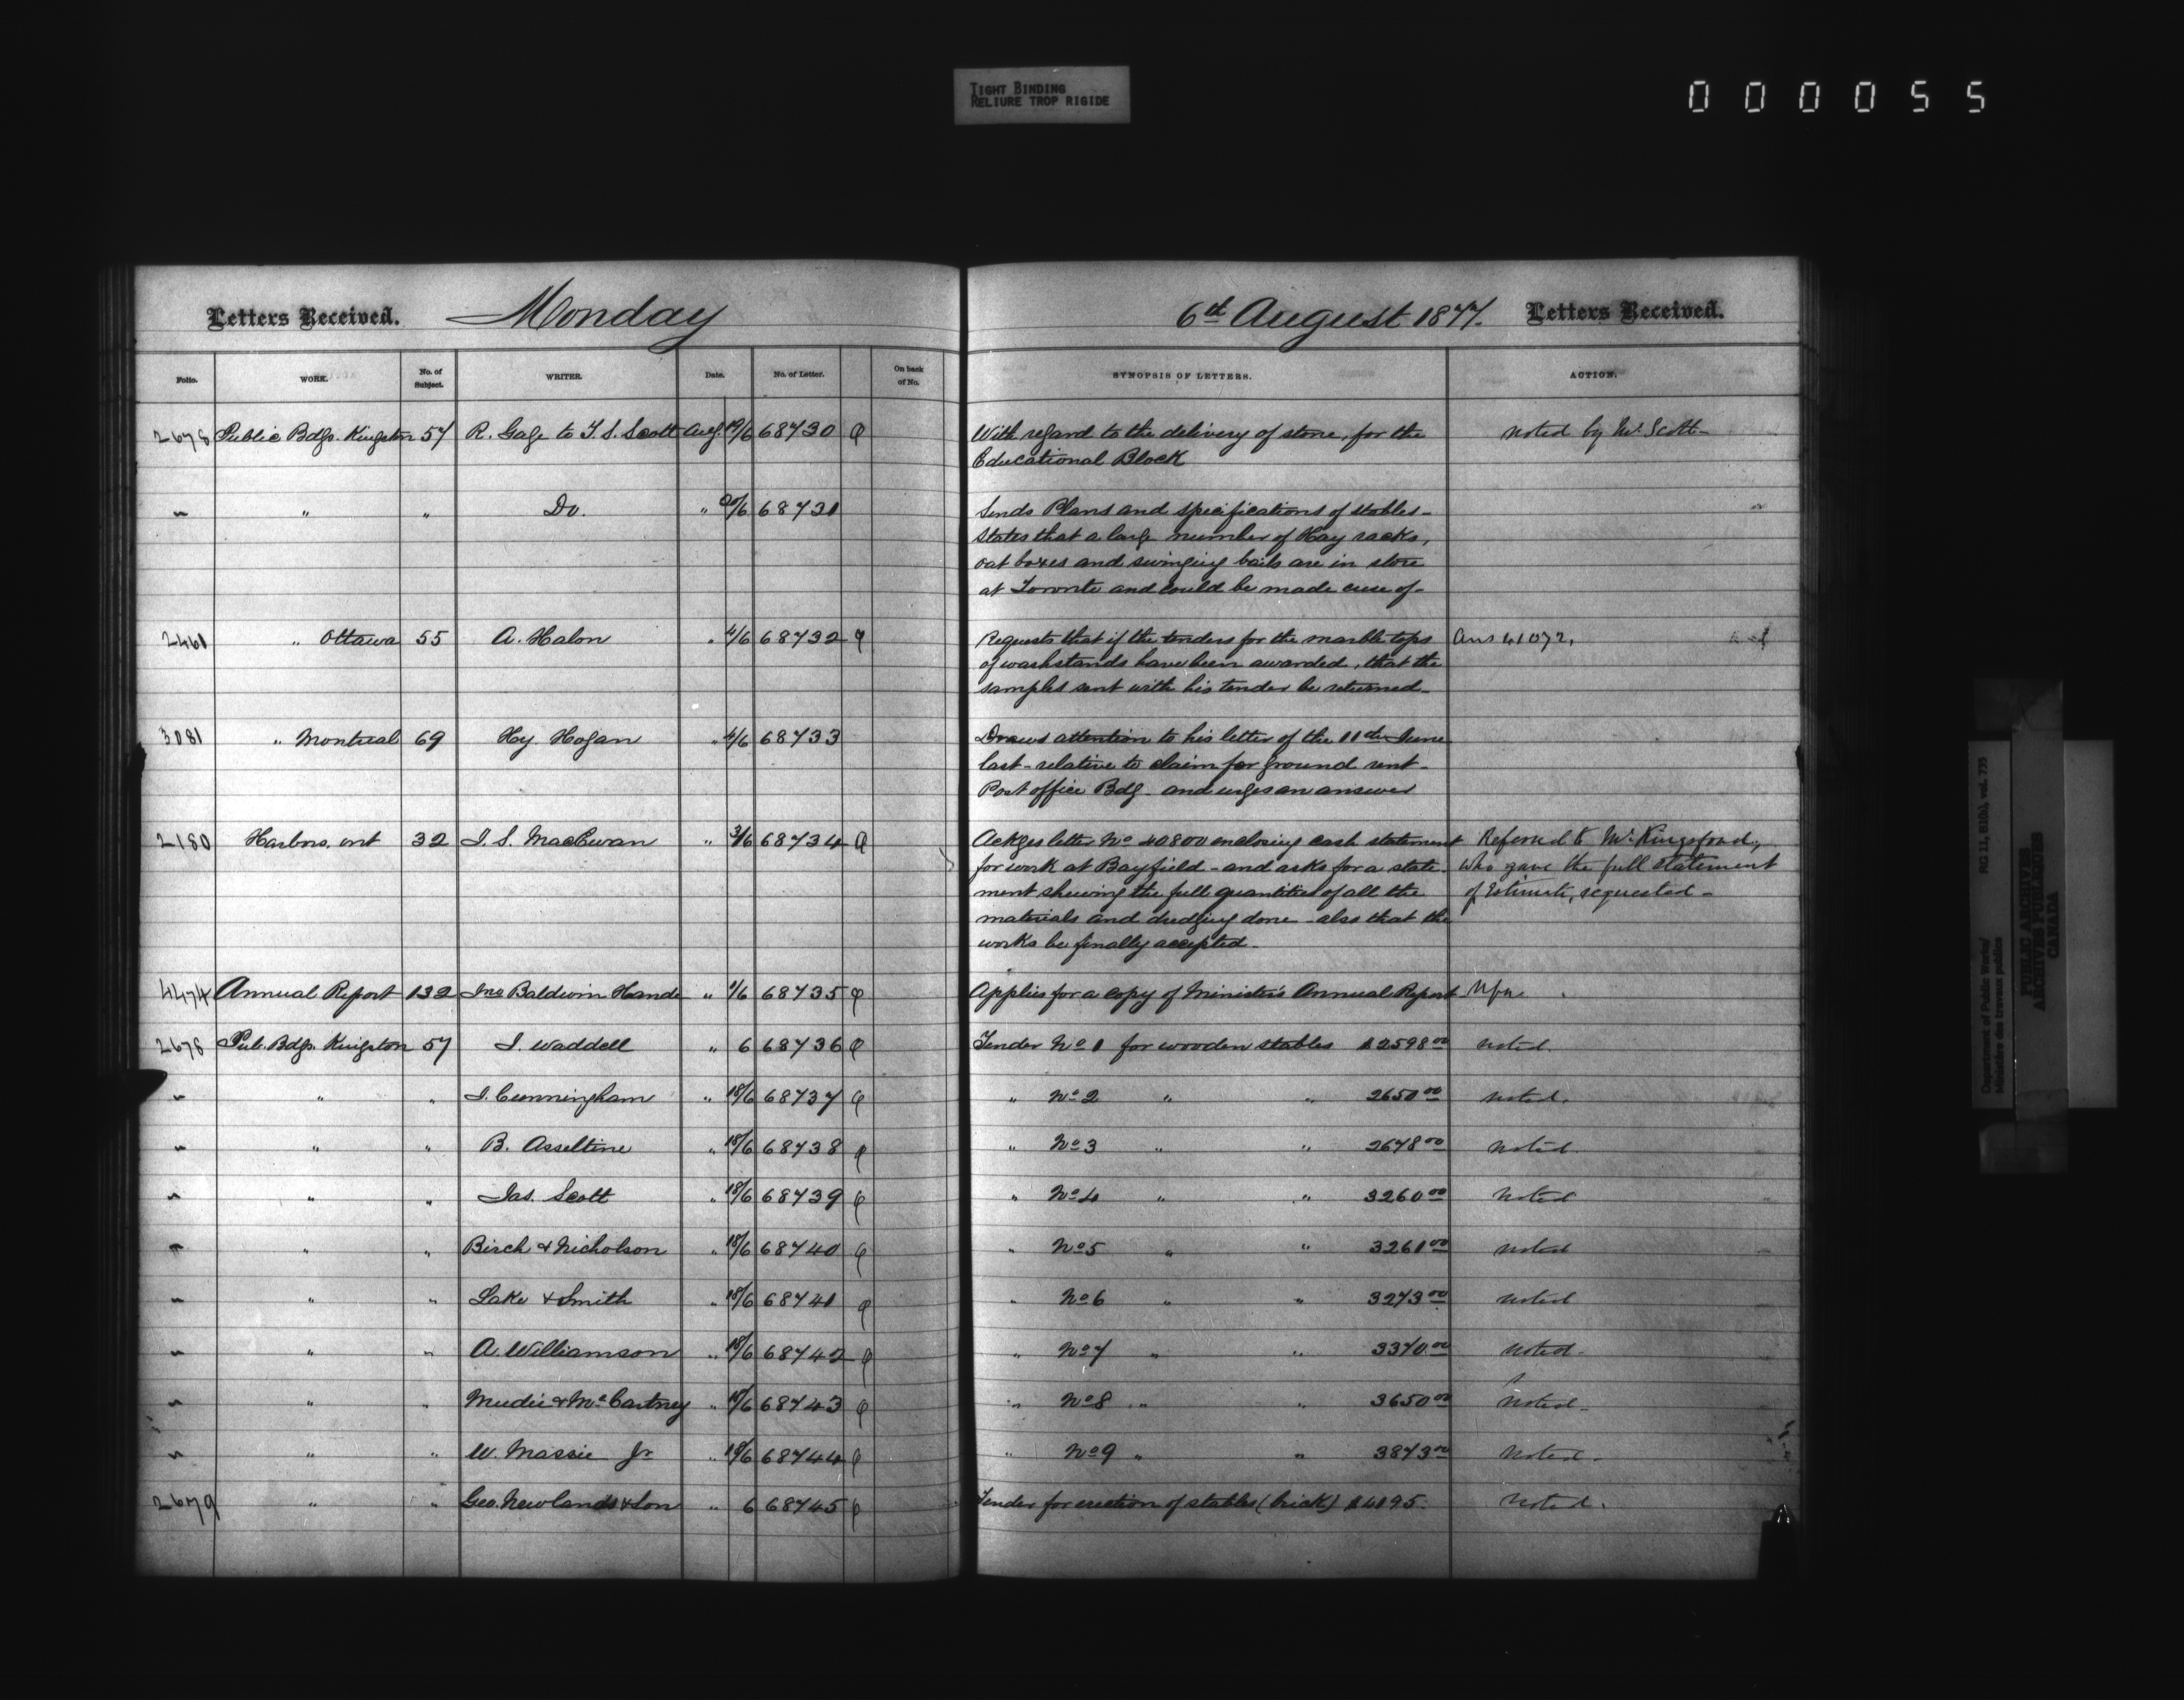 TIGHT BINDING
RELIURE TROP RIGIDE
000055
Letters Received. Monday
Folio. WORK. No. of Subject. WRITER. Date. No. of Letter. On back of No.
2678 Public Bdgs. Kingston 57 R. Gage to T. S. Scott Aug. 68730
" " " Do. " 68731
2461 " Ottawa 55 A. Halon " 4/6 68732
3081 " Montreal 69 Hy. Hogan " 4/6 68733
2180 Harbors, ont 32 J. S. MacEwan " 3/6 68734
4474 Annual Report 132 Jno Baldwin Hands " 1/6 68735
2678 Pub. Bdgs. Kingston 57 J. Waddell " 6 68736
" " " J. Cunningham " 18/6 68737
" " " B. Asseltine " 18/6 68738
" " " Jas. Scott " 18/6 68739
" " " Birch & Nicholson " 18/6 68740
" " " Lake & Smith " 18/6 68741
" " " A. Williamson " 18/6 68742
" " " Mudie & McCartney " 18/6 68743
" " " W. Massie Jr " 18/6 68744
2679 " " Geo. Newlands & Son " 6 68745
6th August 1877. Letters Received.
SYNOPSIS OF LETTERS. ACTION.
With regard to the delivery of stone, for the noted by Mr. Scott-
Educational Block
Sends Plans and specifications of stables-
States that a large number of Hay racks,
oat boxes and swinging bails are in store
at Toronto and could be made use of-
Requests that if the tenders for the marble tops Ans 41072,
of washstands have been awarded, that the
samples sent with his tender be returned-
Draws attention to his letter of the 11th June
last- relative to claim for ground rent-
Post office Bdg- and urges an answer
Ackges letter No 40800 enclosing cash statement Referred to Mr. Kingsford,
for work at Bayfield- and asks for a state- who gave the full statement
ment shewing the full quantities of all the of Estimate, requested-
materials and dredging done- also that the
works be finally accepted-
Applies for a copy of Minister's Annual Report
Tender No 1 for wooden stables $2598.00 noted.
" No 2 " " 2650.00 noted.
" No 3 " " 2678.00 noted.
" No 4 " " 3260.00 noted
" No 5 " " 3261.00 noted
" No 6 " " 3273.00 noted
" No 7 " " 3370.00 noted-
" No 8 " " 3650.00 noted-
" No 9 " " 3873.00 noted-
Tender for erection of stables (brick) $4195. noted.
Department of Public Works/
Ministère des travaux publics
RG 11, B1(a), vol. 735
PUBLIC ARCHIVES
ARCHIVES PUBLIQUES
CANADA